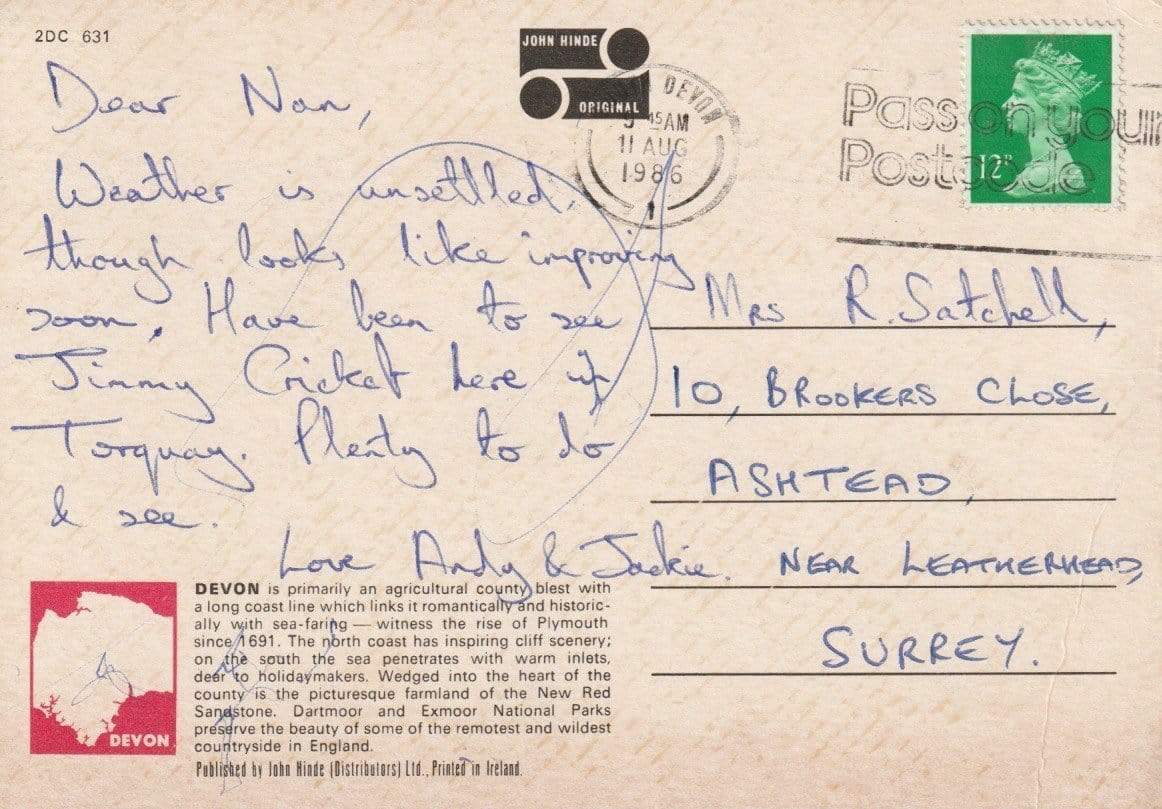 2DC 631
JOHN HINDE
ORIGINAL
DEVON
9 15AM
11 AUG
1986
1
Pass on your
Postcode
12P
Dear Nan,
Weather is unsettled,
though looks like improving
soon. Have been to see
Jimmy Cricket here in
Torquay. Plenty to do
& see.
Love Andy & Jackie.
Mrs R. Satchell,
10, BROOKERS CLOSE,
ASHTEAD,
NEAR LEATHERHEAD,
SURREY.
DEVON
DEVON is primarily an agricultural county blest with
a long coast line which links it romantically and historic-
ally with sea-faring — witness the rise of Plymouth
since 1691. The north coast has inspiring cliff scenery;
on the south the sea penetrates with warm inlets,
dear to holidaymakers. Wedged into the heart of the
county is the picturesque farmland of the New Red
Sandstone. Dartmoor and Exmoor National Parks
preserve the beauty of some of the remotest and wildest
countryside in England.
Published by John Hinde (Distributors) Ltd., Printed in Ireland.